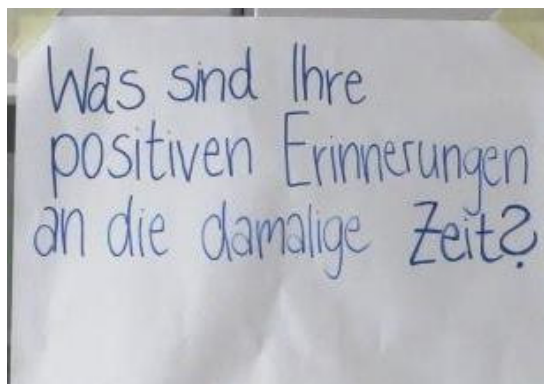 Was sind Ihre
positiven Erinnerungen
an die damalige Zeit?